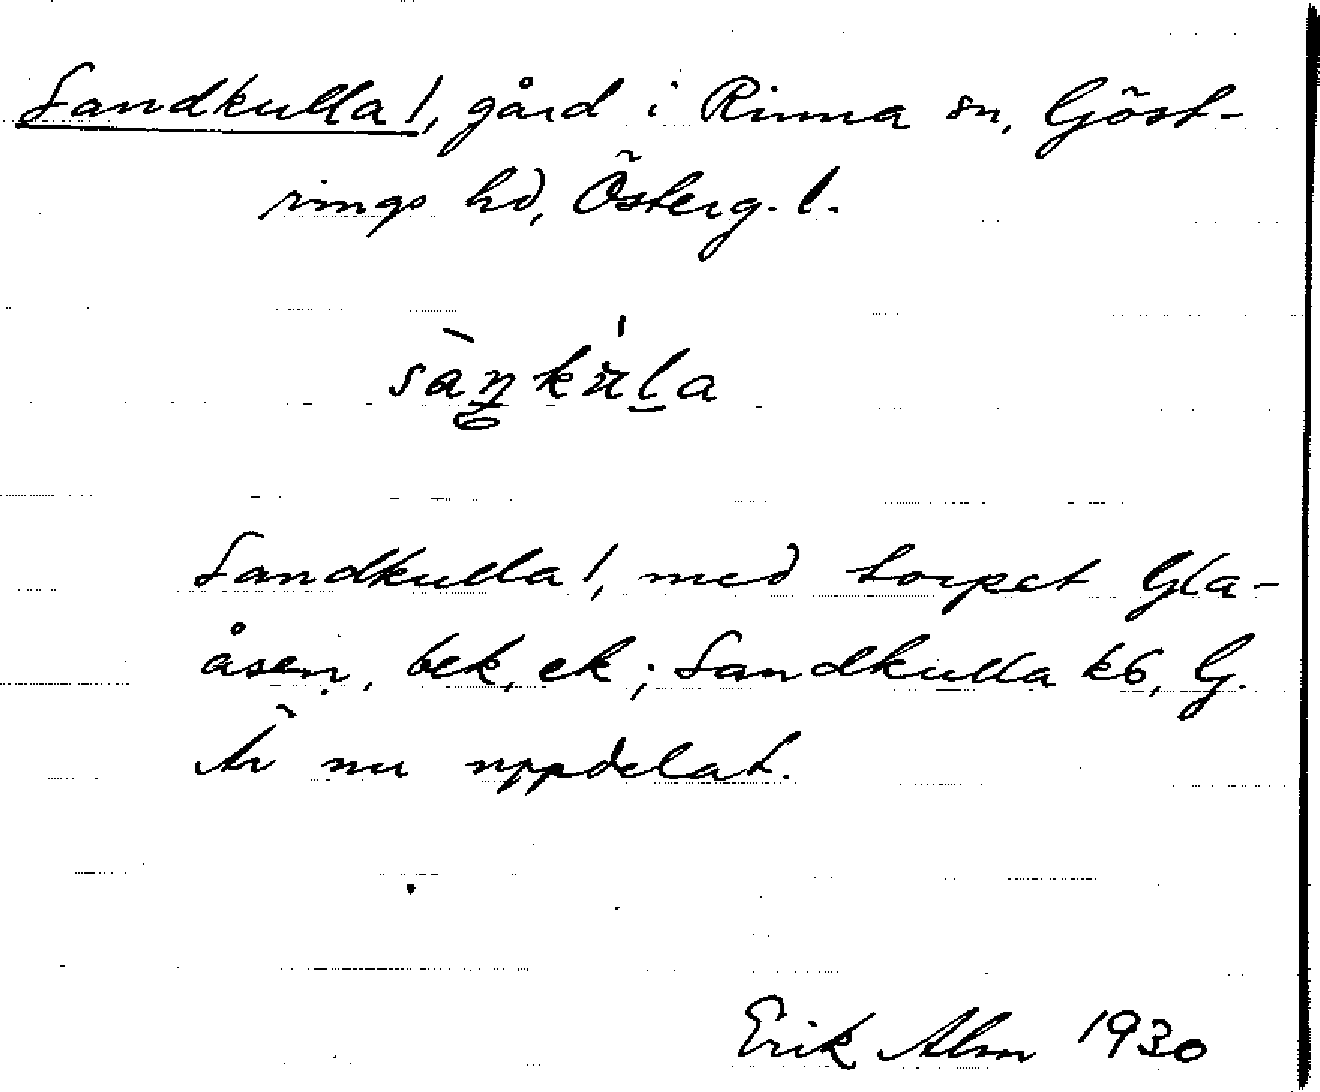 Sandkulla!, gård i Rinna sn, Göst-
rings hd, Österg. l.
sàŋkula
Sandkulla!, med torpet Gla-
åsen, bek, ek; Sandkulla kb, G.
Är nu uppdelat.
Erik Alm 1930